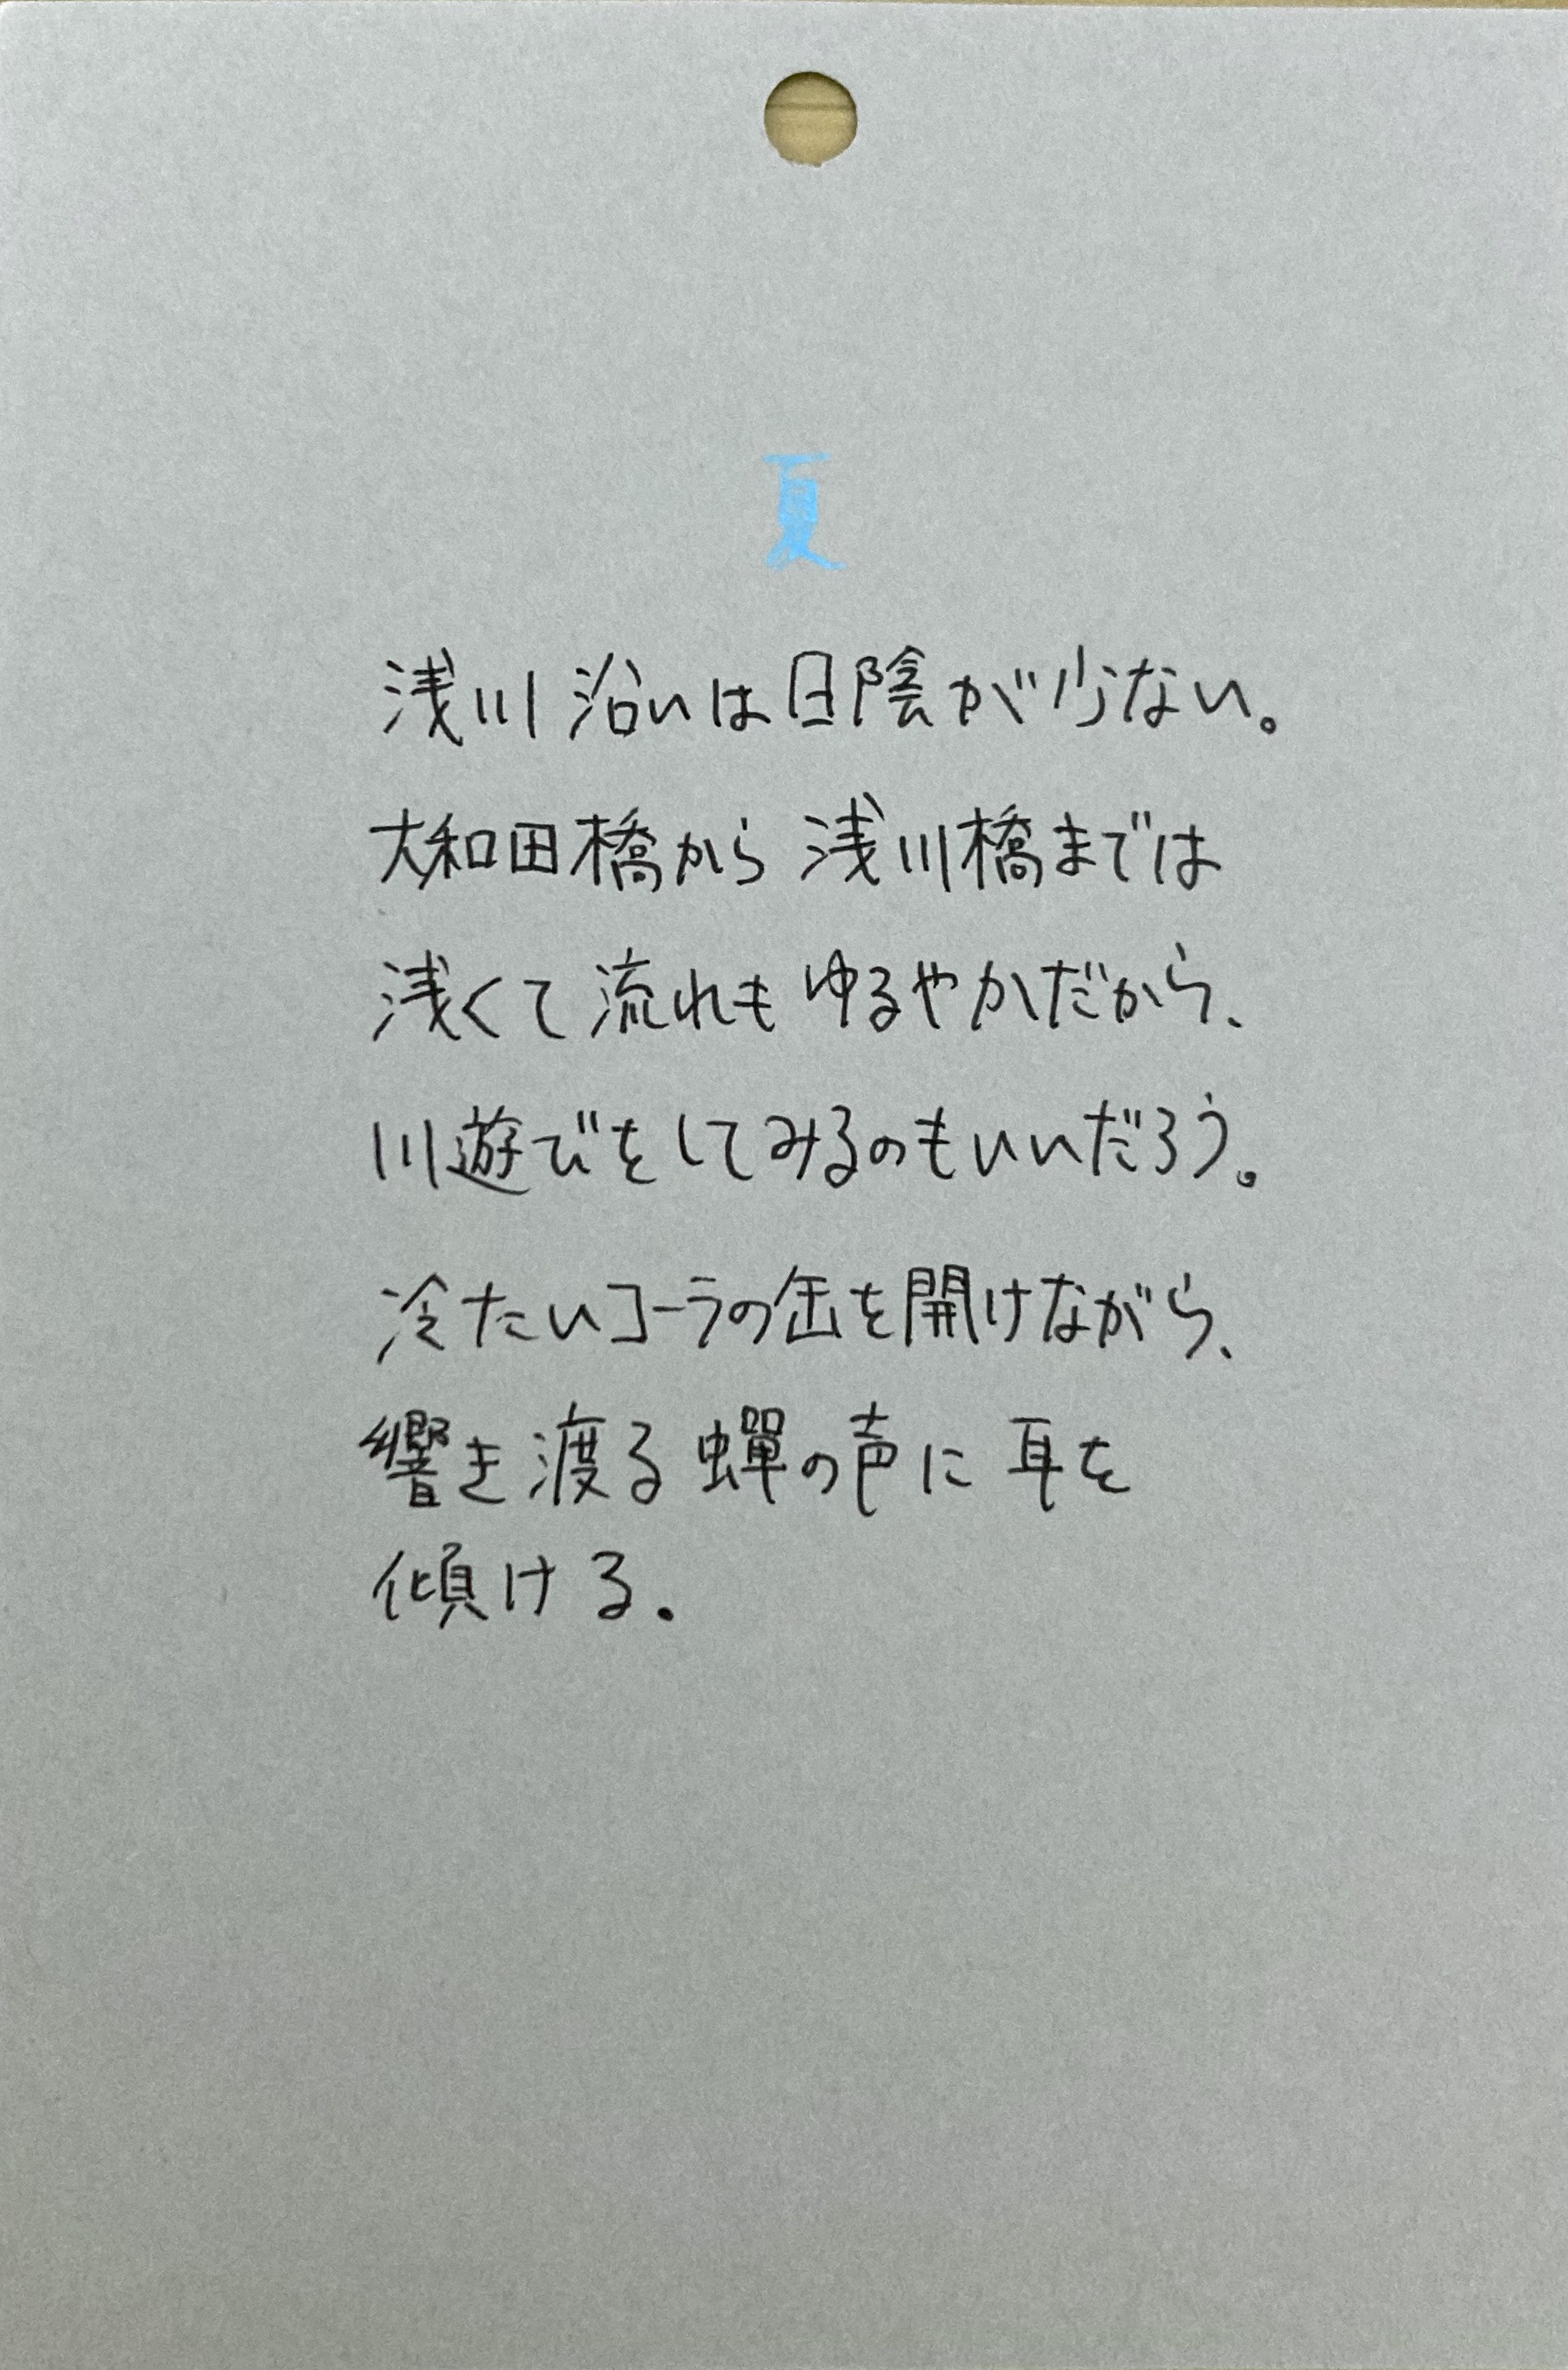 夏
浅川沿いは日陰が少ない。
大和田橋から浅川橋までは
浅くて流れもゆるやかだから、
川遊びをしてみるのもいいだろう。
冷たいコーラの缶を開けながら、
響き渡る蟬の声に耳を
傾ける。